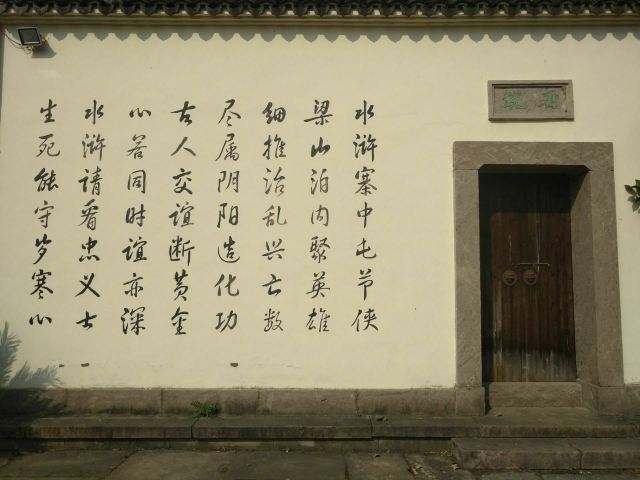 水浒寨中屯节侠
梁山泊内聚英雄
细推治乱兴亡数
尽属阴阳造化功
古人交谊断黄金
心若同时谊亦深
水浒请看忠义士
生死能守岁寒心